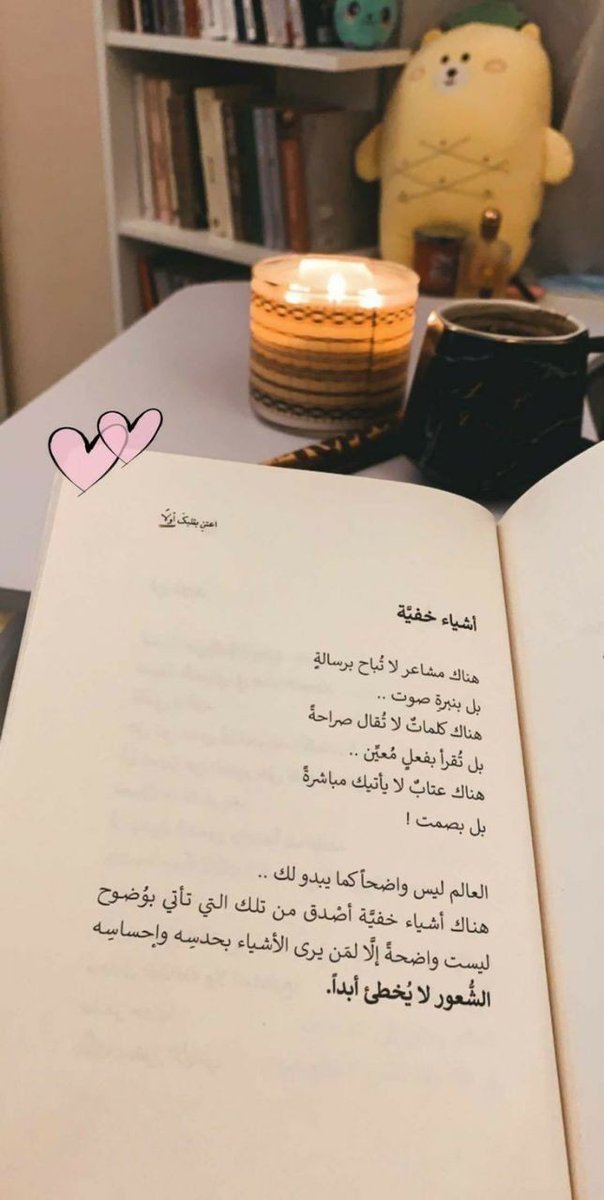 اعتنِ بقلبك أولًا
أشياء خفيَّة
هناك مشاعر لا تُباح برسالةٍ
بل بنبرةِ صوت ..
هناك كلماتٌ لا تُقال صراحةً
بل تُقرأ بفعلٍ مُعيَّن ..
هناك عتابٌ لا يأتيك مباشرةً
بل بصمت !
العالم ليس واضحاً كما يبدو لك ..
هناك أشياء خفيَّة أصْدق من تلك التي تأتي بوُضوح
ليست واضحةً إلَّا لمَن يرى الأشياء بحدسِه وإحساسِه
الشُّعور لا يُخطئ أبداً.